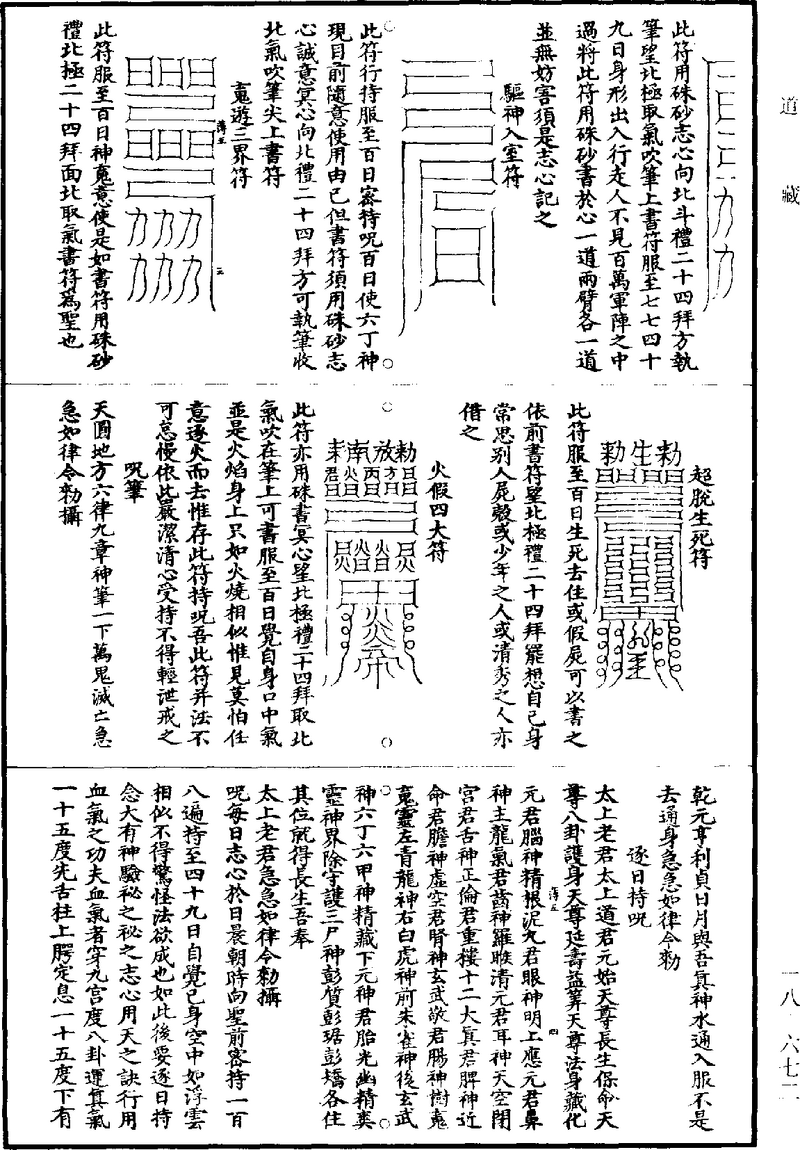 道藏
此符用硃砂志心向北斗禮二十四拜方執
筆望北極取氣吹筆上書符服至七七四十
九日身形出入行走人不見百萬軍陣之中
過將此符用硃砂書於心一道兩臂各一道
並無妨害須是志心記之
驅神入室符
此符行持服至百日密持呪百日使六丁神
現目前隨意使用由已但書符須用硃砂志
心誠意冥心向北禮二十四拜方可執筆收
北氣吹筆尖上書符
䰟遊三界符
此符服至百日神䰟意使是如書符用硃砂
禮北極二十四拜面北取氣書符為聖也
超脫生死符
勅生勑
此符服至百日生死去住或假屍可以書之
依前書符望北極禮二十四拜罷想自己身
常思别人屍殼或少年之人或清秀之人亦
借之
火假四大符
勅放南来
此符亦用硃書冥心望北極禮二十四拜取北
氣吹在筆上可書服至百日覺自身口中氣
並是火焰身上只如火燒相似惟見莫怕任
意逐火而去惟存此符持呪吾此符并法不
可怠慢依此嚴潔清心受持不得輕泄戒之
呪筆
天圓地方六律九章神筆一下萬鬼滅亡急
急如律令勑攝
乾元亨利貞日月與吾真神水通入服不是
去通身急急如律令勑
逐日持呪
太上老君太上道君元始天尊長生保命天
尊八卦護身天尊延壽益筭天尊法身藏化
元君腦神精根泥九君眼神明上應元君鼻
神主龍氣君齒神羅睺清元君耳神天空閉
宮君舌神正倫君重樓十二大真君脾神近
命君膽神虛空君腎神玄武敬君腸神樹䰟
䰟靈左青龍神右白虎神前朱雀神後玄武
神六丁六甲神精藏下元神君胎光幽精奭
靈神界除守護三尸神彭質彭琚彭矯各住
其位就得長生吾奉
太上老君急急如律令勑攝
呪每日志心於日晨朝時向聖前密持一百
八遍持至四十九日自覺已身空中如浮雲
相似不得驚怪法欲成也如此後要逐日持
念大有神驗秘之秘之志心用天之訣行用
血氣之功夫血氣者穿九宮度八卦運真氣
一十五度先舌柱上腭定息一十五度下有
一八·六七二